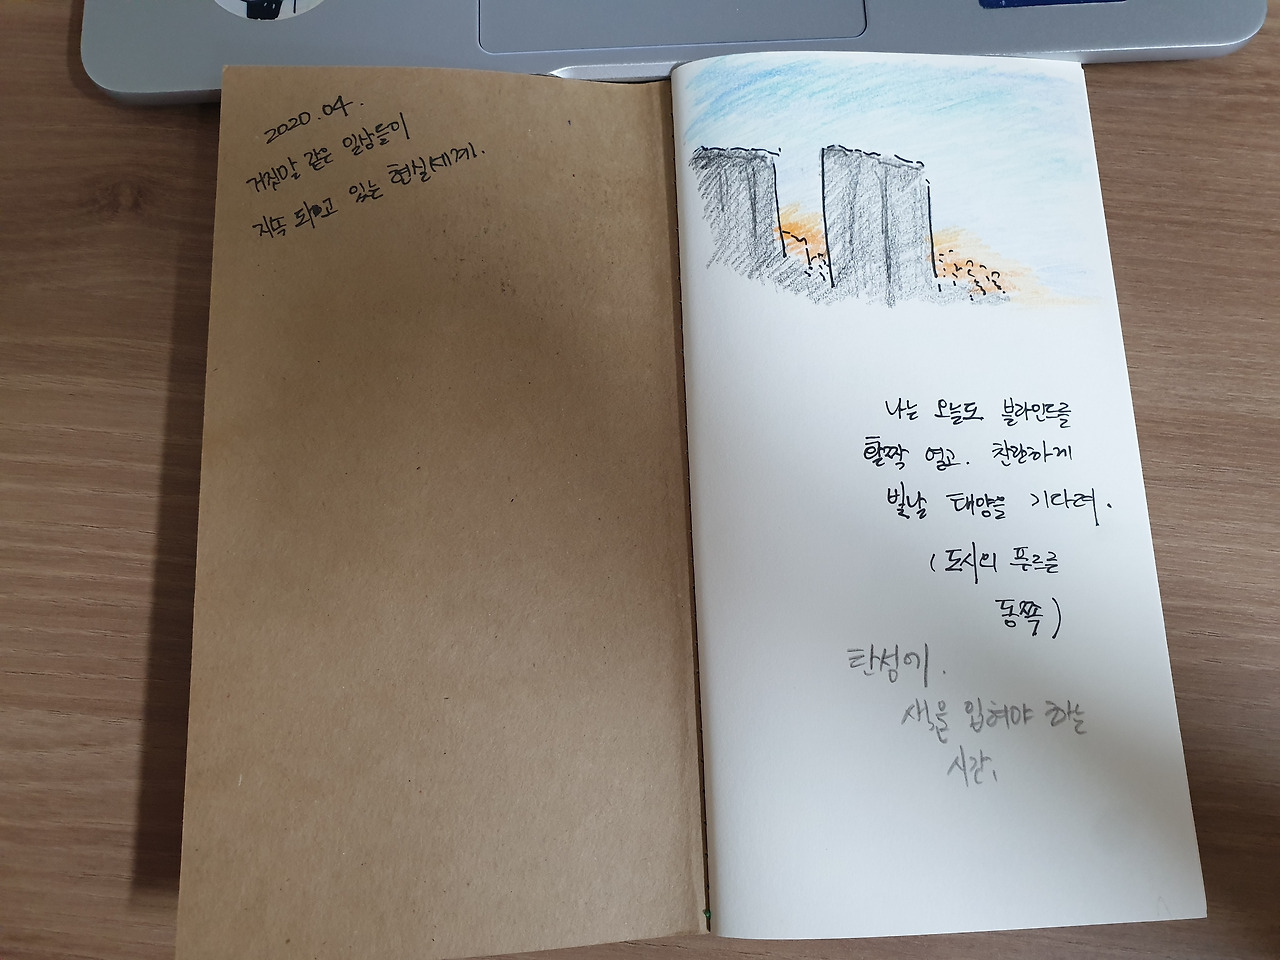 2020.04.
거짓말 같은 일상들이
지속 되고 있는 현실세계.
나는 오늘도 블라인드를
활짝 열고. 찬란하게
빛날 태양을 기다려.
(도시의 푸르른
동쪽)
탄성에.
색을 입혀야 하는
시간.